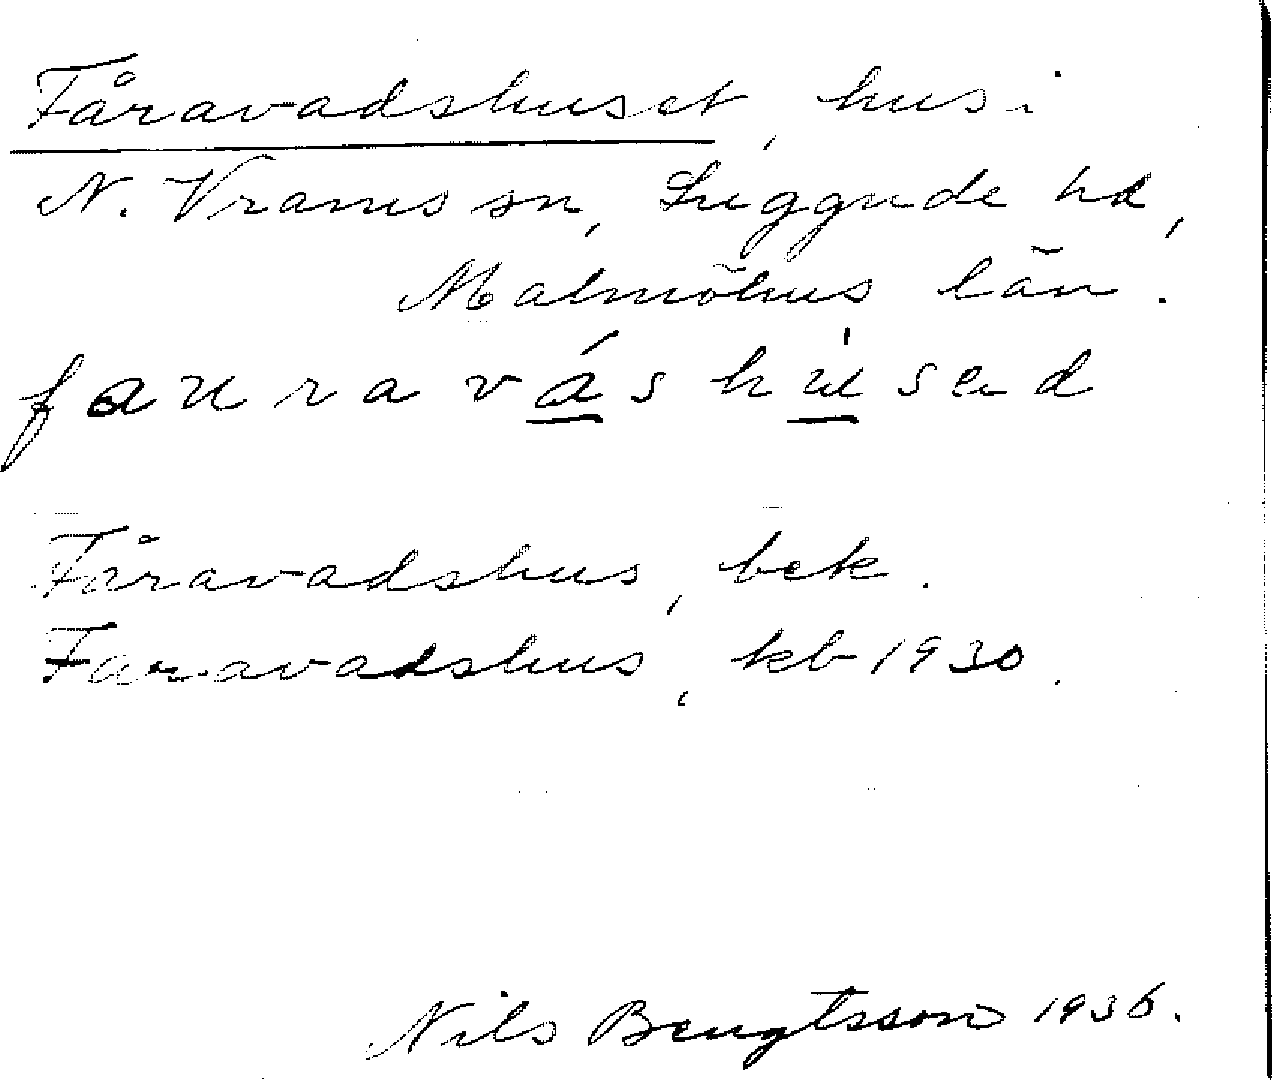 Fåravadshuset, hus i
N. Vrams sn, Luggude hd,
Malmöhus län.
fauraváshúsad
Fåravadshus, bek.
Faravadshus, kb 1930.
Nils Bengtsson 1936.